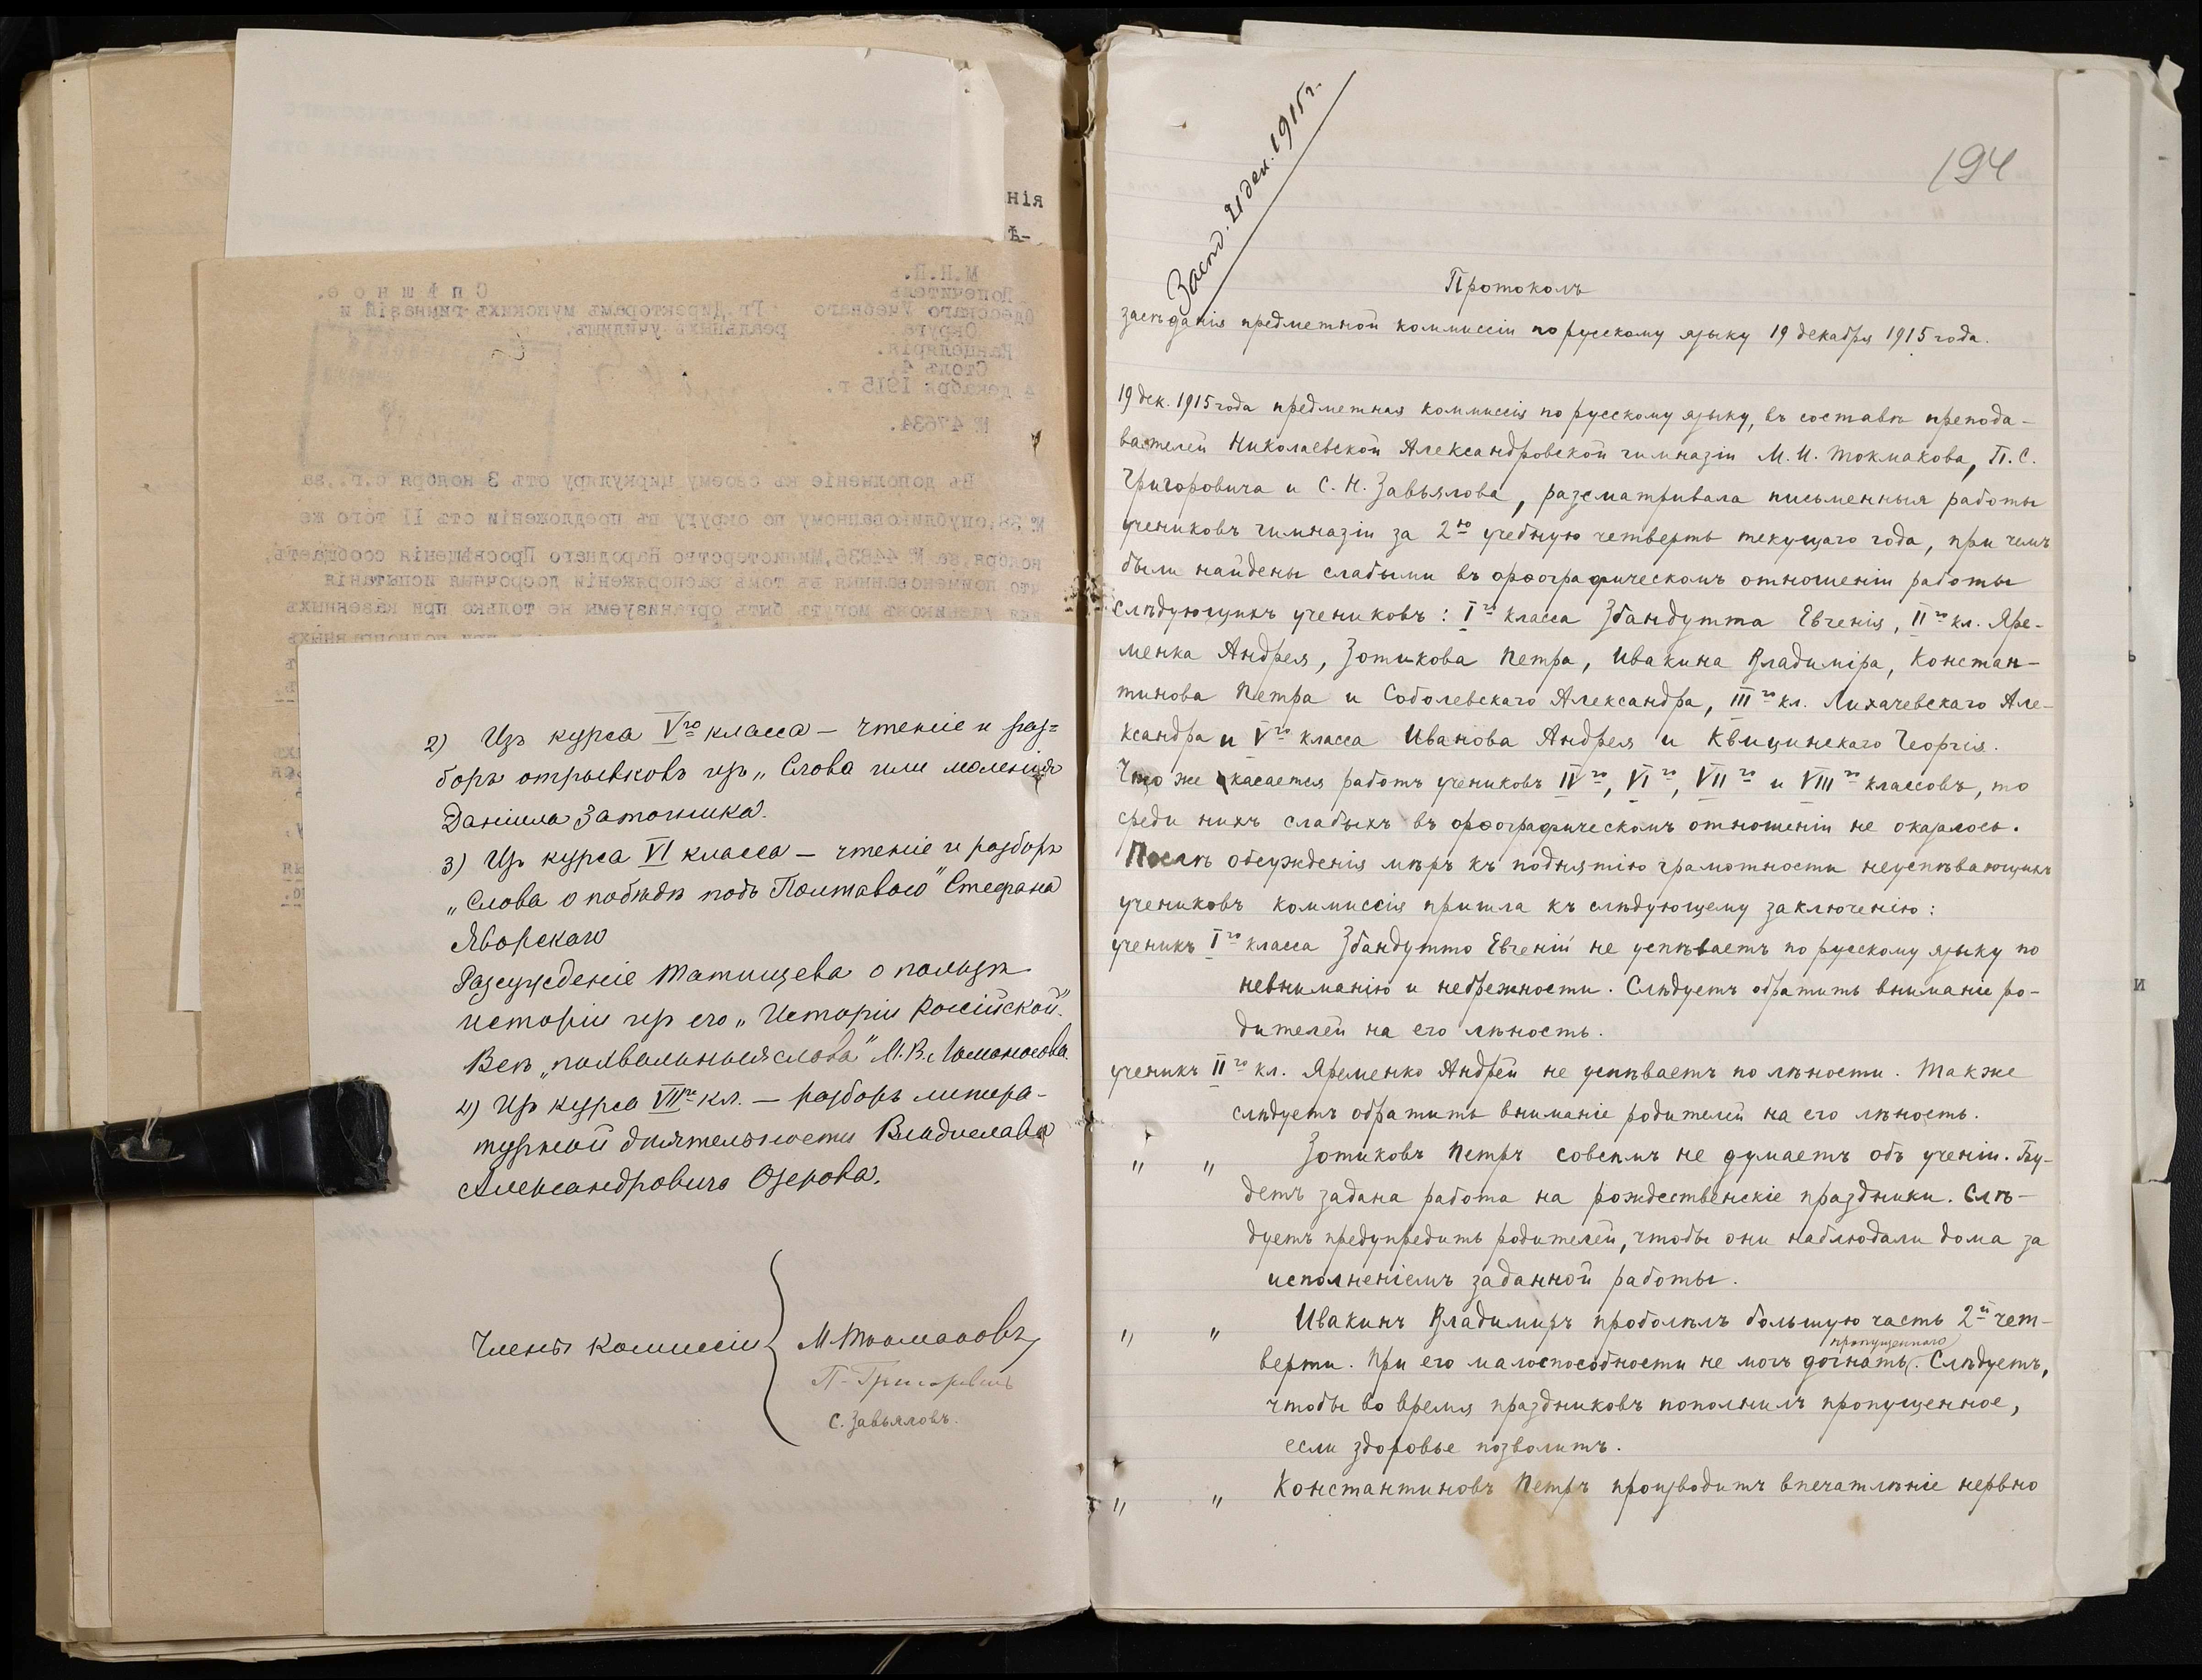 2) Изъ курса Vго класса – чтеніе и раз=
боръ отрывковъ изъ „Слова или моленія
Даніила Заточника.
3) Изъ курса VI класса – чтеніе и разборъ
„Слова о побѣдѣ подъ Полтавою" Стефана
Яворскаго
Разсужденіе Татищева о пользѣ
исторіи изъ его „Исторіи Россійской".
Всѣ „похвальныя слова" М.В. Ломоносова.
4) Изъ курса VIIго кл. – разборъ литера-
турной дѣятельности Владислава
Александровича Озерова.
Члены комиссіи
М. Токмаковъ
П. Григоровичъ
С. Завьяловъ.
Засѣд. 21 дек. 1915 г.
194
Протоколъ
засѣданія предметной коммиссіи по русскому языку 19 декабря 1915 года.
19 дек. 1915 года предметная коммиссія по русскому языку, въ составѣ препода-
вателей Николаевской Александровской гимназіи М. И. Токмакова, П. С.
Григоровича и С. Н. Завьялова, разсматривала письменныя работы
учениковъ гимназіи за 2ю учебную четверть текущаго года, при чемъ
были найдены слабыми въ орѳографическомъ отношеніи работы
слѣдующихъ учениковъ: Iго класса Збандутта Евгенія, IIго кл. Яре-
менка Андрея, Зотикова Петра, Ивакина Владиміра, Констан-
тинова Петра и Соболевскаго Александра, IIIго кл. Лихачевскаго Але-
ксандра и Vго класса Иванова Андрея и Квицинскаго Георгія.
Что же касается работъ учениковъ IVго, VIго, VIIго и VIIIго классовъ, то
среди нихъ слабыхъ въ орѳографическомъ отношеніи не оказалось.
Послѣ обсужденія мѣръ къ поднятію грамотности неуспѣвающихъ
учениковъ коммиссія пришла къ слѣдующему заключенію:
ученикъ Iго класса Збандутто Евгеній не успѣваетъ по русскому языку по
невниманію и небрежности. Слѣдуетъ обратить вниманіе ро-
дителей на его лѣность.
ученикъ IIго кл. Яременко Андрей не успѣваетъ по лѣности. Также
слѣдуетъ обратить вниманіе родителей на его лѣность.
„ „ Зотиковъ Петръ совсѣмъ не думаетъ объ ученіи. Бу-
детъ задана работа на рождественскіе праздники. Слѣ-
дуетъ предупредить родителей, чтобы они наблюдали дома за
исполненіемъ заданной работы.
„ „ Ивакинъ Владимиръ проболѣлъ большую часть 2й чет-
верти. При его малоспособности не могъ догнать пропущеннаго. Слѣдуетъ,
чтобы во время праздниковъ пополнилъ пропущенное,
если здоровье позволитъ.
„ „ Константиновъ Петръ производитъ впечатлѣніе нервно